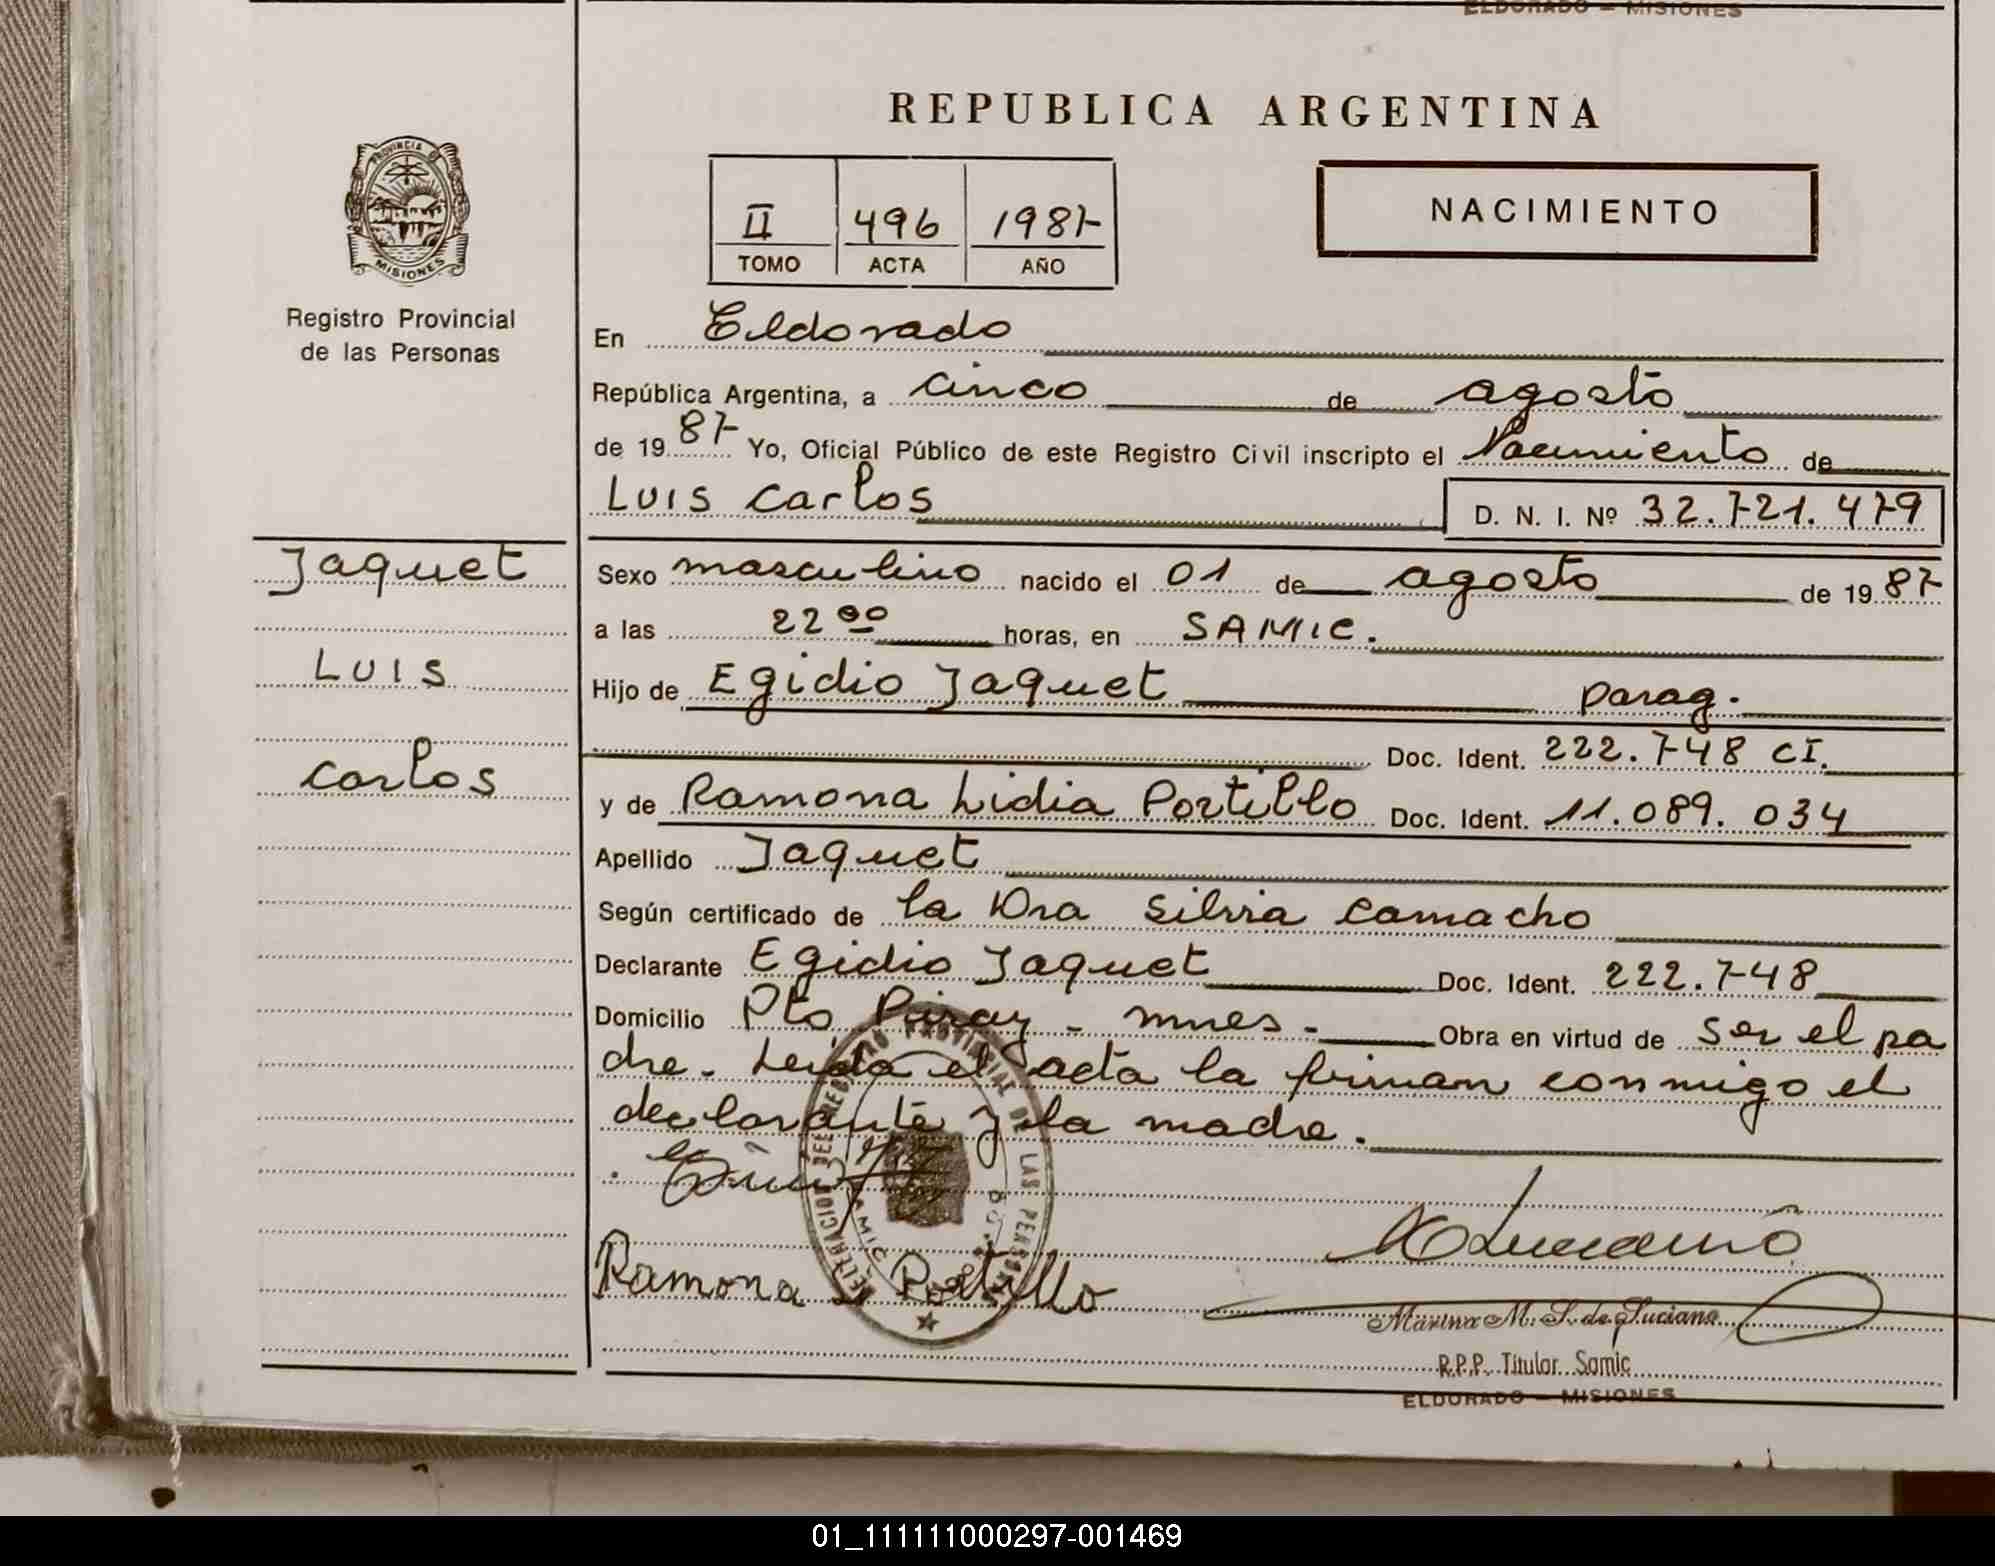 ELDORADO — MISIONES
REPUBLICA ARGENTINA
PROVINCIA D
MISIONES
Registro Provincial
de las Personas
II 496 1987
TOMO ACTA AÑO
NACIMIENTO
En Eldorado
República Argentina, a cinco de agosto
de 19 87 Yo, Oficial Público de este Registro Civil inscripto el Nacimiento de
Luis Carlos D. N. I. Nº 32.721.479
Jaquet
Luis
Carlos
Sexo masculino nacido el 01 de agosto de 19 87
a las 22 00 horas, en SAMIC.
Hijo de Egidio Jaquet parag.
Doc. Ident. 222.748 CI.
y de Ramona Lidia Portillo Doc. Ident. 11.089.034
Apellido Jaquet
Según certificado de la Dra Silvia Camacho
Declarante Egidio Jaquet Doc. Ident. 222.748
Domicilio Pto Piray - mnes. Obra en virtud de ser el pa
dre. Leida el acta la firman conmigo el
declarante y la madre.
REGISTRO PROVINCIAL DE LAS PERSONAS
Ramona L Portillo
Marina M. S. de Luciano
R.P.P. Titular Samic
ELDORADO — MISIONES
01_111111000297-001469